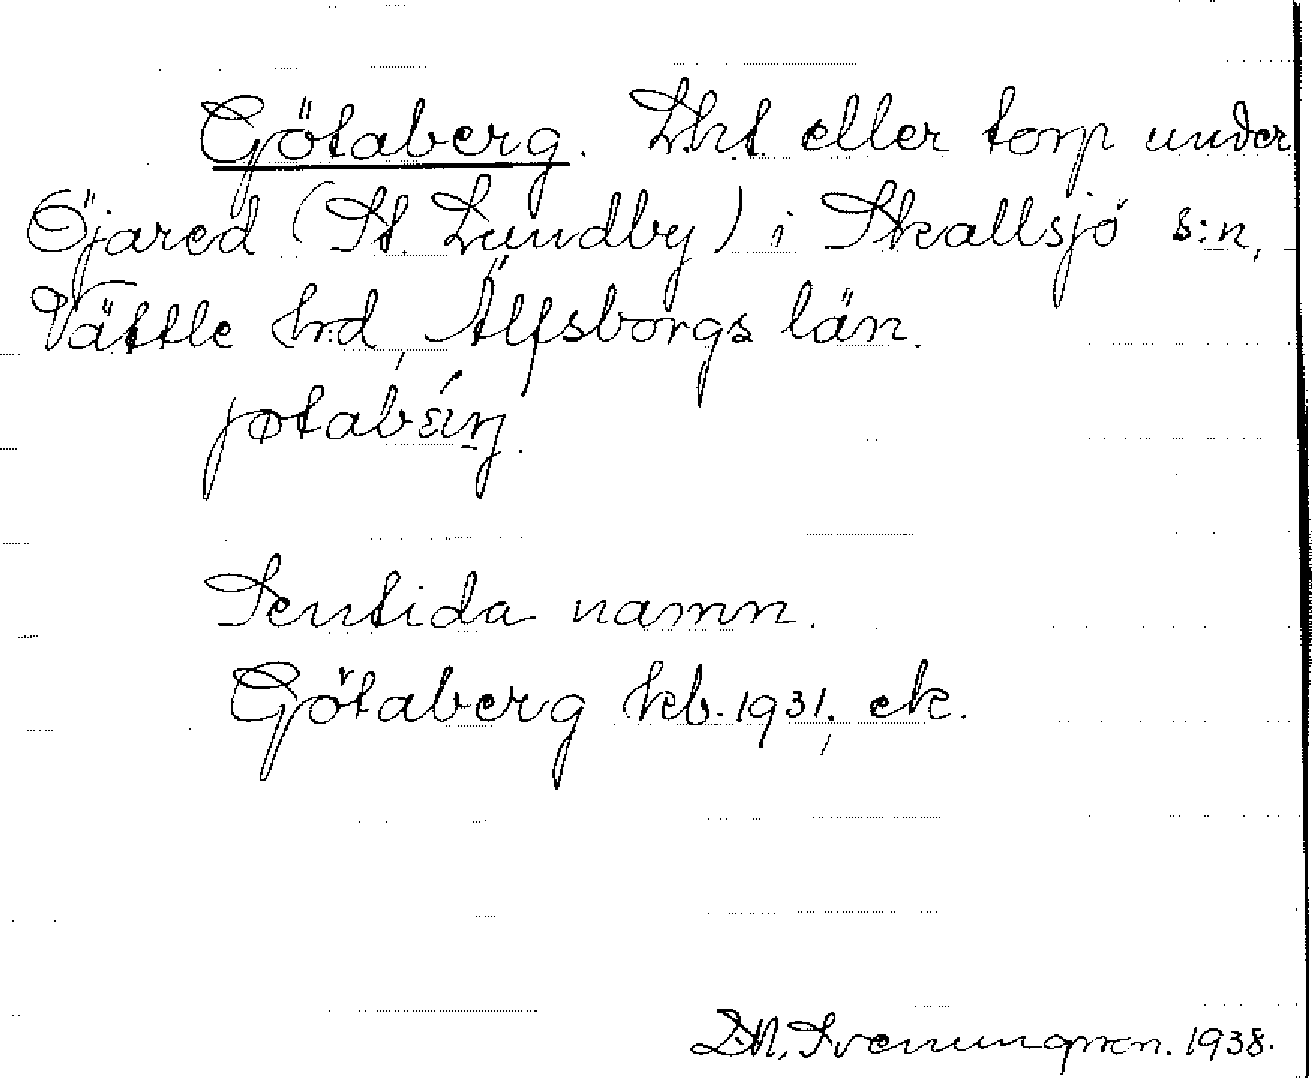 Götaberg. Lht. eller torp under
Öjared (St. Lundby) i Skallsjö s:n,
Vättle hrd, Älfsborgs län.
jøtabæ̀rj.
Sentida namn.
Götaberg kb. 1931, ek.
Svenungsson. 1938.